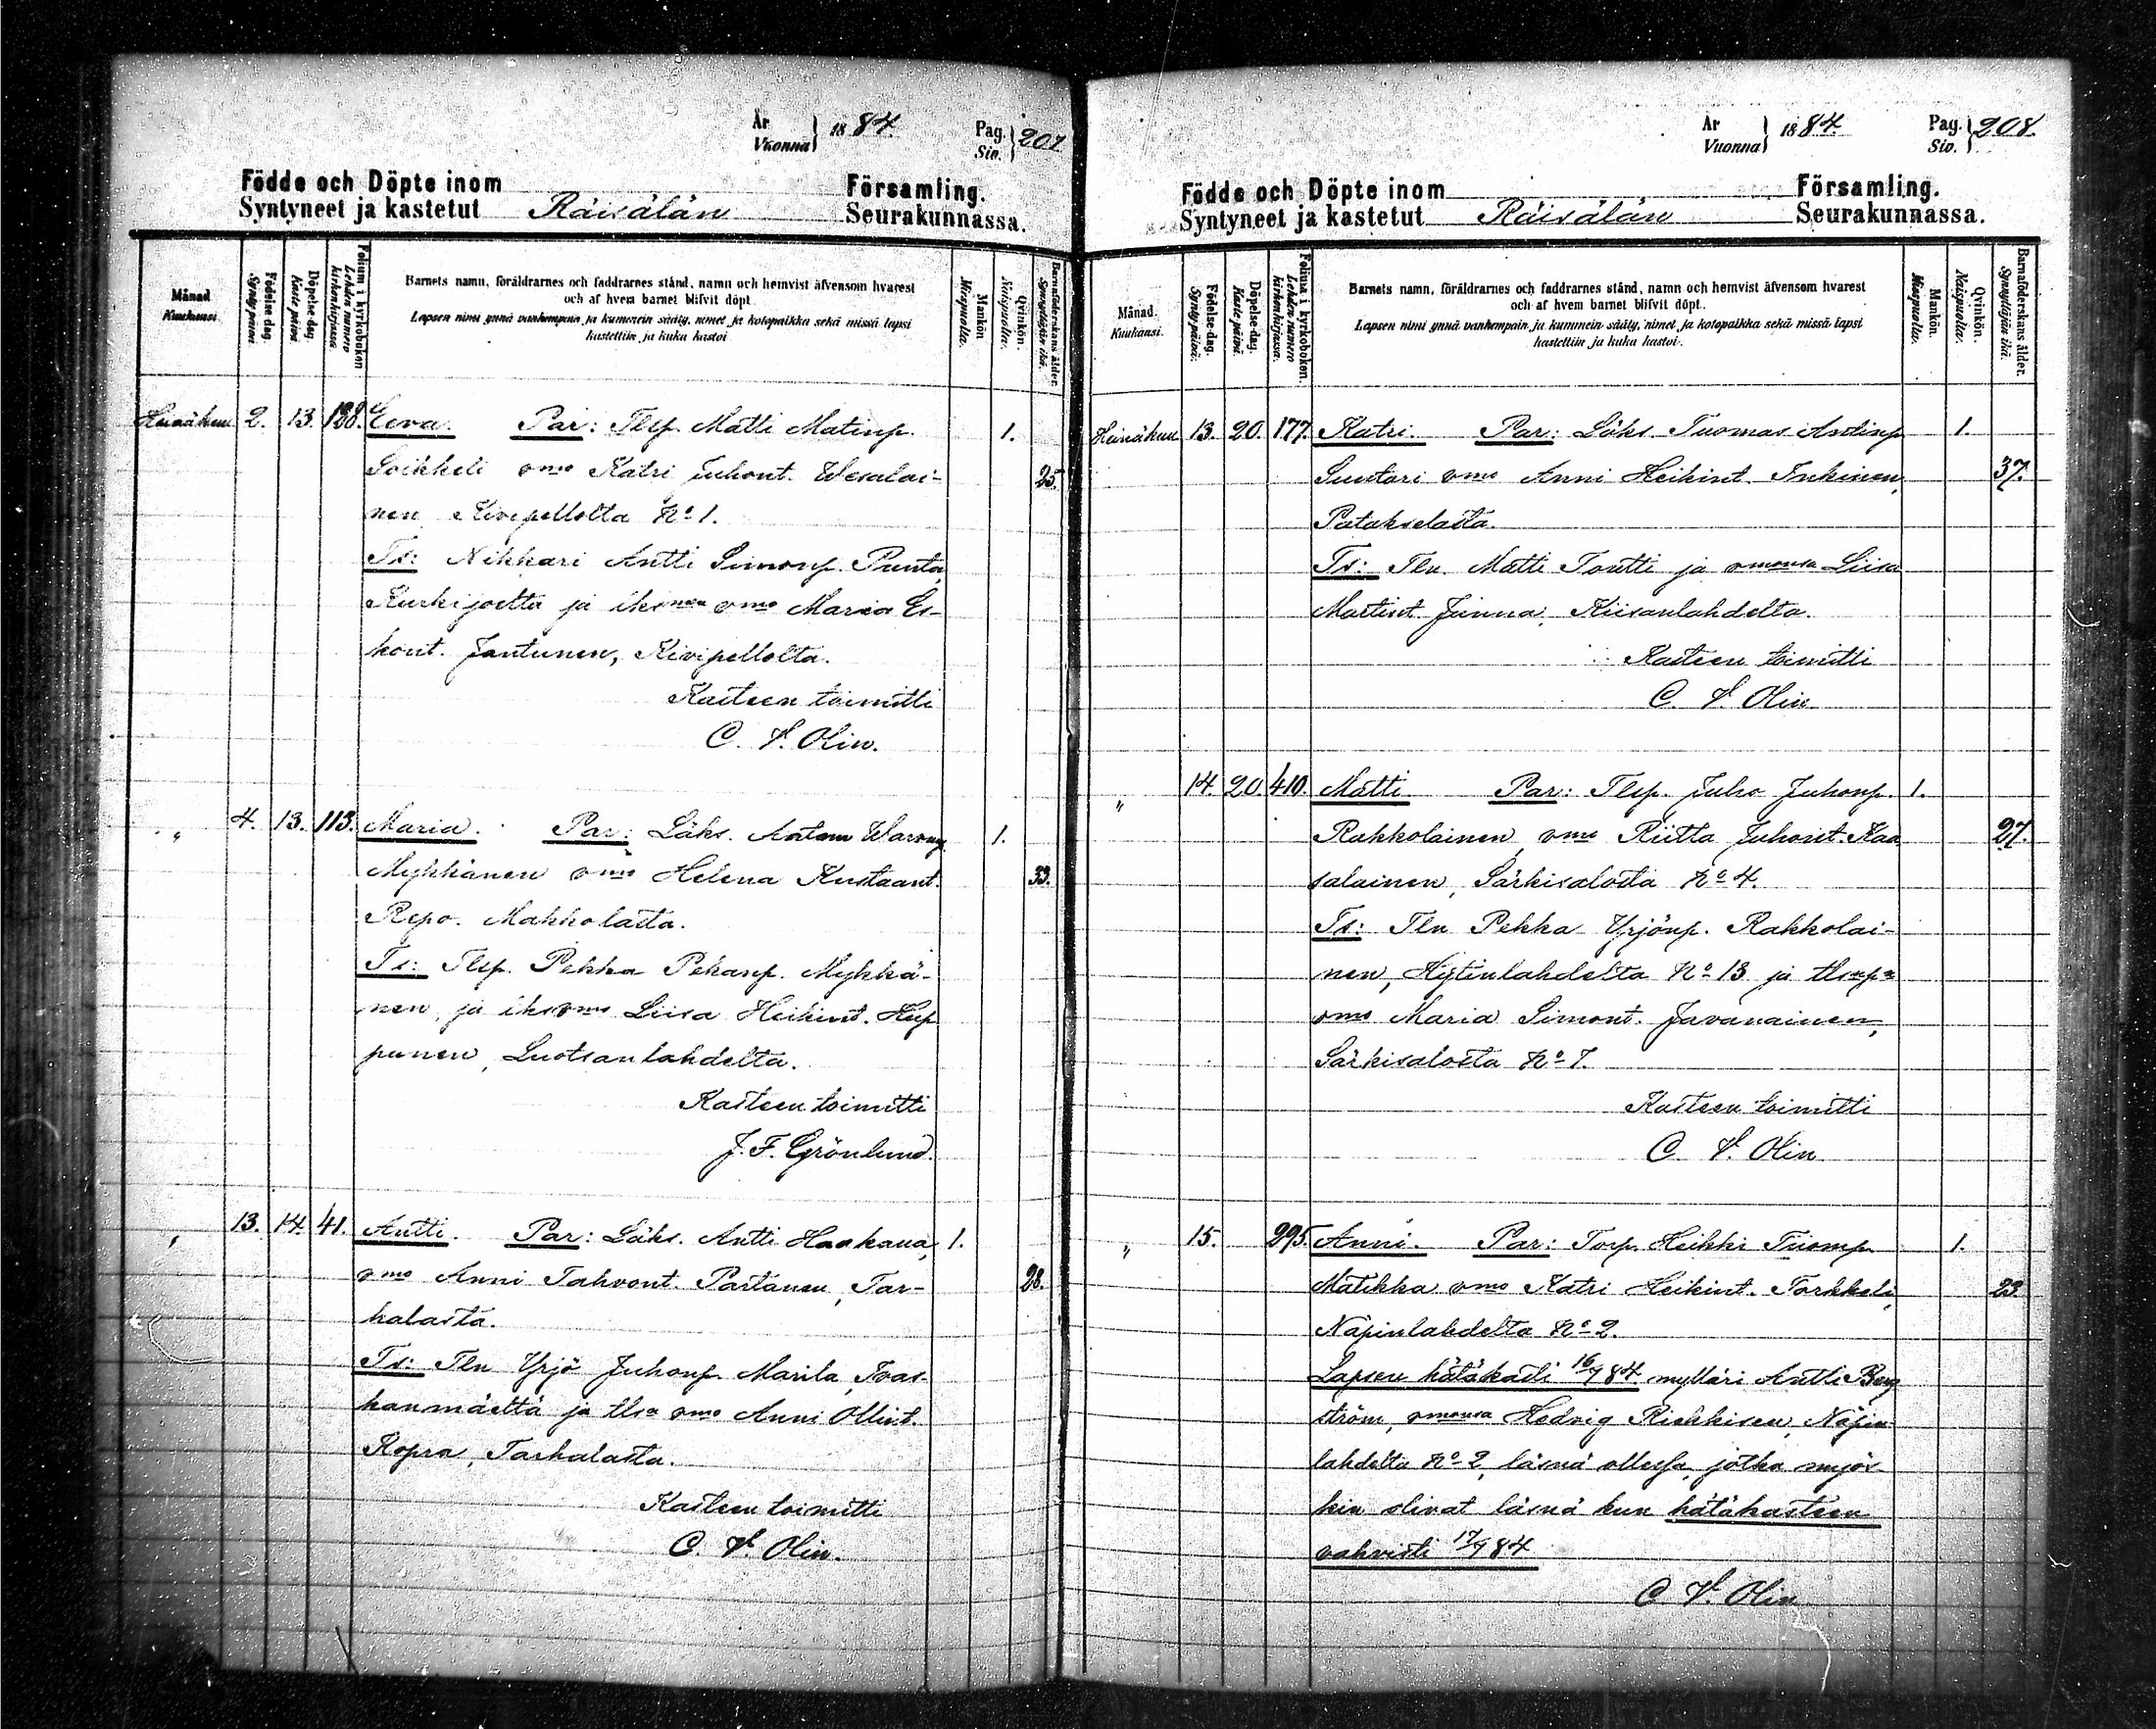 År
Vuonna } 1884.
Pag.
Siv. } 207
Födde och Döpte inom Församling.
Syntyneet ja kastetut Räisälän Seurakunnassa.
Månad Kuukausi
Födelse dag. Syntypäivä.
Döpelse dag. Kaste päivä.
Folium i kyrkoboken Lehden numero kirkonkirjassa
Barnets namn, föräldrarnes och faddrarnes stånd, namn och hemvist äfvensom hvarest
och af hvem barnet blifvit döpt.
Lapsen nimi ynnä vanhempain ja kummein sääty, nimet ja kotopaikka sekä missä lapsi
kastettiin ja kuka kastoi
Mankön Miespuolta.
Qvinkön. Naispuolta.
Barnaföderskans ålder. Synnyttäjän ikä.
Heinäkuu 2. 13. 188. Eeva. Par: Tlsp. Matti Matinp. 1.
Soikkeli vmo Katri Juhont. Wesalai- 25.
nen Kivipellolta No 1.
Ts: Nikkari Antti Simonp. Punta,
Kurkijoelta ja iksnen vmo Maria Es-
kont. Jantunen, Kivipellolta.
Kasteen toimitti
C. V. Olin.
„ 4. 13. 113. Maria. Par: Läks. Antom 1.
Mykkänen vmo Helena Kustaant. 33.
Repo. Makkolasta.
Ts: Tlsp. Pekka Pekanp. Mykkä-
nen, ja iks vmo Liisa Heikint. Hup
punen, Luotsanlahdelta.
Kasteen toimitti
J. F. Grönlund.
„ 13. 14. 41. Antti. Par: Läks. Antti Haakana, 1.
vmo Anni Tahvont. Partanen, Tar- 28.
kalasta.
Ts: Tln Yrjö Juhonp. Marila, Ivas-
kanmäeltä ja tlsn vmo Anni Ollint.
Kopra, Tarkalasta.
Kasteen toimitti
C. V. Olin.
År
Vuonna } 1884.
Pag.
Siv. } 208.
Födde och Döpte inom Församling.
Syntyneet ja kastetut Räisälän Seurakunnassa.
Månad. Kuukausi.
Födelse dag. Syntypäivä.
Döpelse dag. Kaste päivä.
Folium i kyrkoboken. Lehden numero kirkonkirjassa.
Barnets namn, föräldrarnes och faddrarnes stånd, namn och hemvist äfvensom hvarest
och af hvem barnet blifvit döpt.
Lapsen nimi ynnä vanhempain ja kummein sääty, nimet ja kotopaikka sekä missä lapsi
kastettiin ja kuka kastoi.
Mankön. Miespuolta.
Qvinkön. Naispuolta.
Barnaföderskans ålder. Synnyttäjän ikä.
Heinäkuu 13. 20. 177. Katri. Par: Läks. Tuomas Antinp. 1.
Suutari vmo Anni Heikint. Inkinen, 37.
Patakselasta.
Ts: Tln. Matti Tontti ja vmonsa Liisa
Martint. Jänna, Kiisanlahdelta.
Kasteen toimitti
C. V. Olin
„ 14. 20. 410. Matti Par: Tlsp. Juho Juhonp. 1.
Rakkolainen, vmo Riitta Juhont. Kaa 27.
salainen, Särkisalosta No 4.
Ts: Tln Pekka Yrjönp. Rakkolai-
nen, Hytinlahdelta No 13 ja tlsnpn
vmo Maria Simont. Javanainen,
Särkisalosta No 7.
Kasteen toimitti
C. V. Olin
„ 15. 295. Anni. Par: Torp. Heikki Tuomp. 1.
Matikka vmo Katri Heikint. Torkkeli, 23.
Näpinlahdelta No 2.
Lapsen hätäkasti 16/7 84 mylläri Antti Berg
ström, vmonsa Hedvig Riekkisen, Näpin
lahdelta No 2, läsnä ollessa, jotka myös
kin olivat läsnä kun hätäkasteen
vahvisti 17/7 84
C. V. Olin